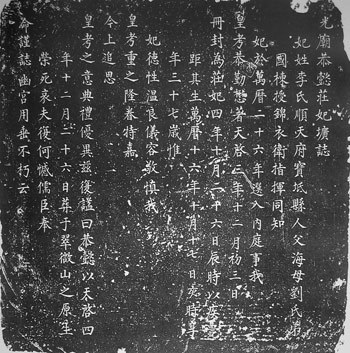 光廟恭懿莊妃壙誌
妃姓李氏順天府寶坻縣人父海母劉氏
國棟授錦衣衛指揮同知
妃於萬曆二十六年選入內庭事我
皇考恭勤懋著天啓二年十二月初三日
冊封為莊妃四年十一月二十六日辰時以疾
距其生萬曆十六年十月十七日亥時享
年三十七歲惟
妃德性溫良儀容敬慎我
皇考重之隆眷特嘉
今上追思
皇考之意典禮優異茲復諡曰恭懿以天啓四
年十二月二十六日葬于翠微山之原生
榮死哀夫復何憾儒臣奉
命謹誌幽宮用垂不朽云